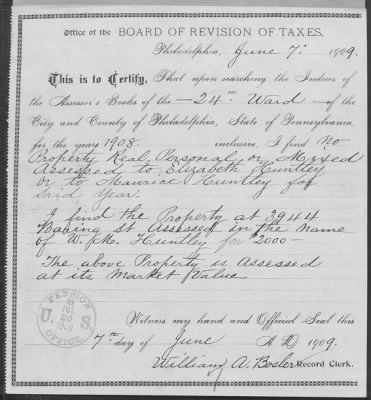 Office of the BOARD OF REVISION OF TAXES.
Philadelphia, June 7" 1909.
This is to Certify, That upon searching the Indices of
the Assessor's Books of the -24th Ward- of the
City and County of Philadelphia, State of Pennsylvania,
for the years 1908 inclusive, I find no
Property Real Personal or Mixed
Assessed to Elizabeth Huntley
or to Maurice Huntley for
said Year.
I find the Property at 3944
Baring st Assessed in the name
of W. Mc. Huntley for $2000-
The above Property is Assessed
at its Market Value
PENSION OFFICE
U.S.
JUL
1909
Witness my hand and Official Seal this
7th day of June A.D. 1909.
William A. Bosler Record Clerk.